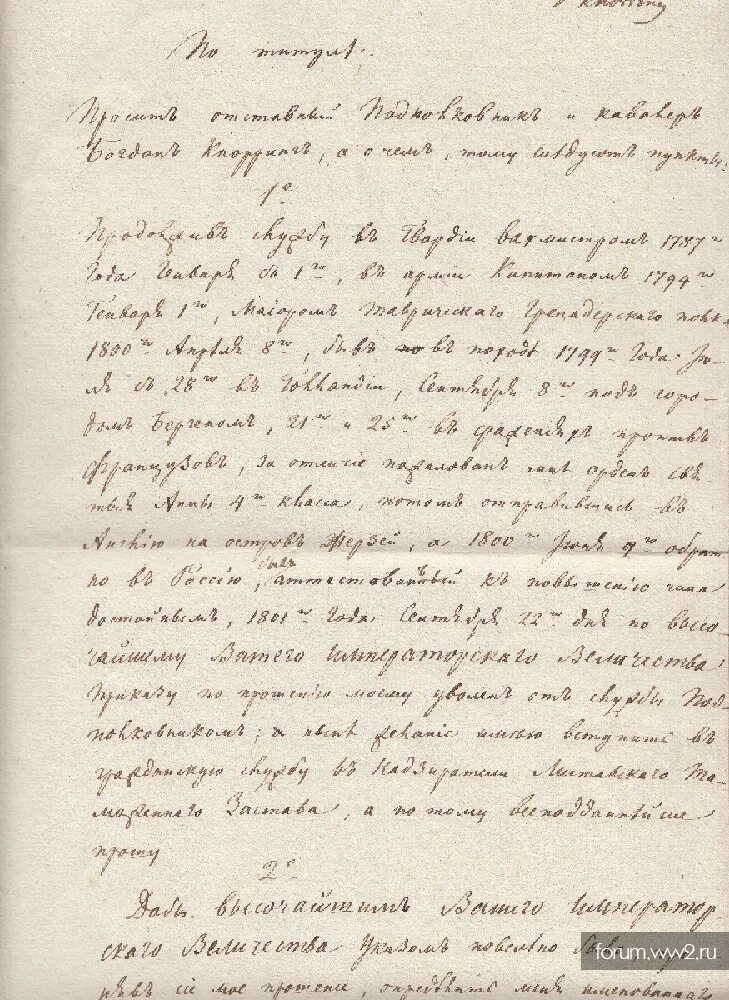 По титулѣ.
Проситъ отставный Подполковникъ и кавалеръ
Богданъ Кноррингъ, а о чемъ, тому слѣдуютъ пункты:
1е
Продолживъ службу въ Гвардіи вахмистромъ 1787го
Года Генваря съ 1го, въ арміи Капитаномъ 1794го
Генваря 1го, Маіоромъ Таврическаго Гренадерскаго полка
1800го Апрѣля 8го, бывъ въ походѣ 1799го Года Iю-
ля съ 28го въ Голландіи, Сентября 8го подъ горо-
домъ Бергеномъ, 21го и 25го въ сраженіяхъ противъ
Французовъ, за отличіе пожалованъ мнѣ орденъ Свя-
тыя Анны 4го класса, потомъ отправившись въ
Англію на островъ Жерзей, а 1800го Iюня 9го обрат-
но въ Россію, былъ аттестованный къ повышенію чина
достойнымъ, 1801го Года Сентября 22го дня по высо-
чайшему Вашего Императорскаго Величества
приказу по прошенію моему уволенъ отъ службы Под-
полковникомъ; а нынѣ желаніе имѣю вступить въ
гражданскую службу въ Надзиратели Митавскаго Та-
моженнаго Застава, а по тому всеподданнѣйше
прошу
2е
Дабы высочайшимъ Вашего Император-
скаго Величества Указомъ повелѣно было
сіе мое прошеніе, опредѣлить меня имяннованнаго
forum.ww2.ru